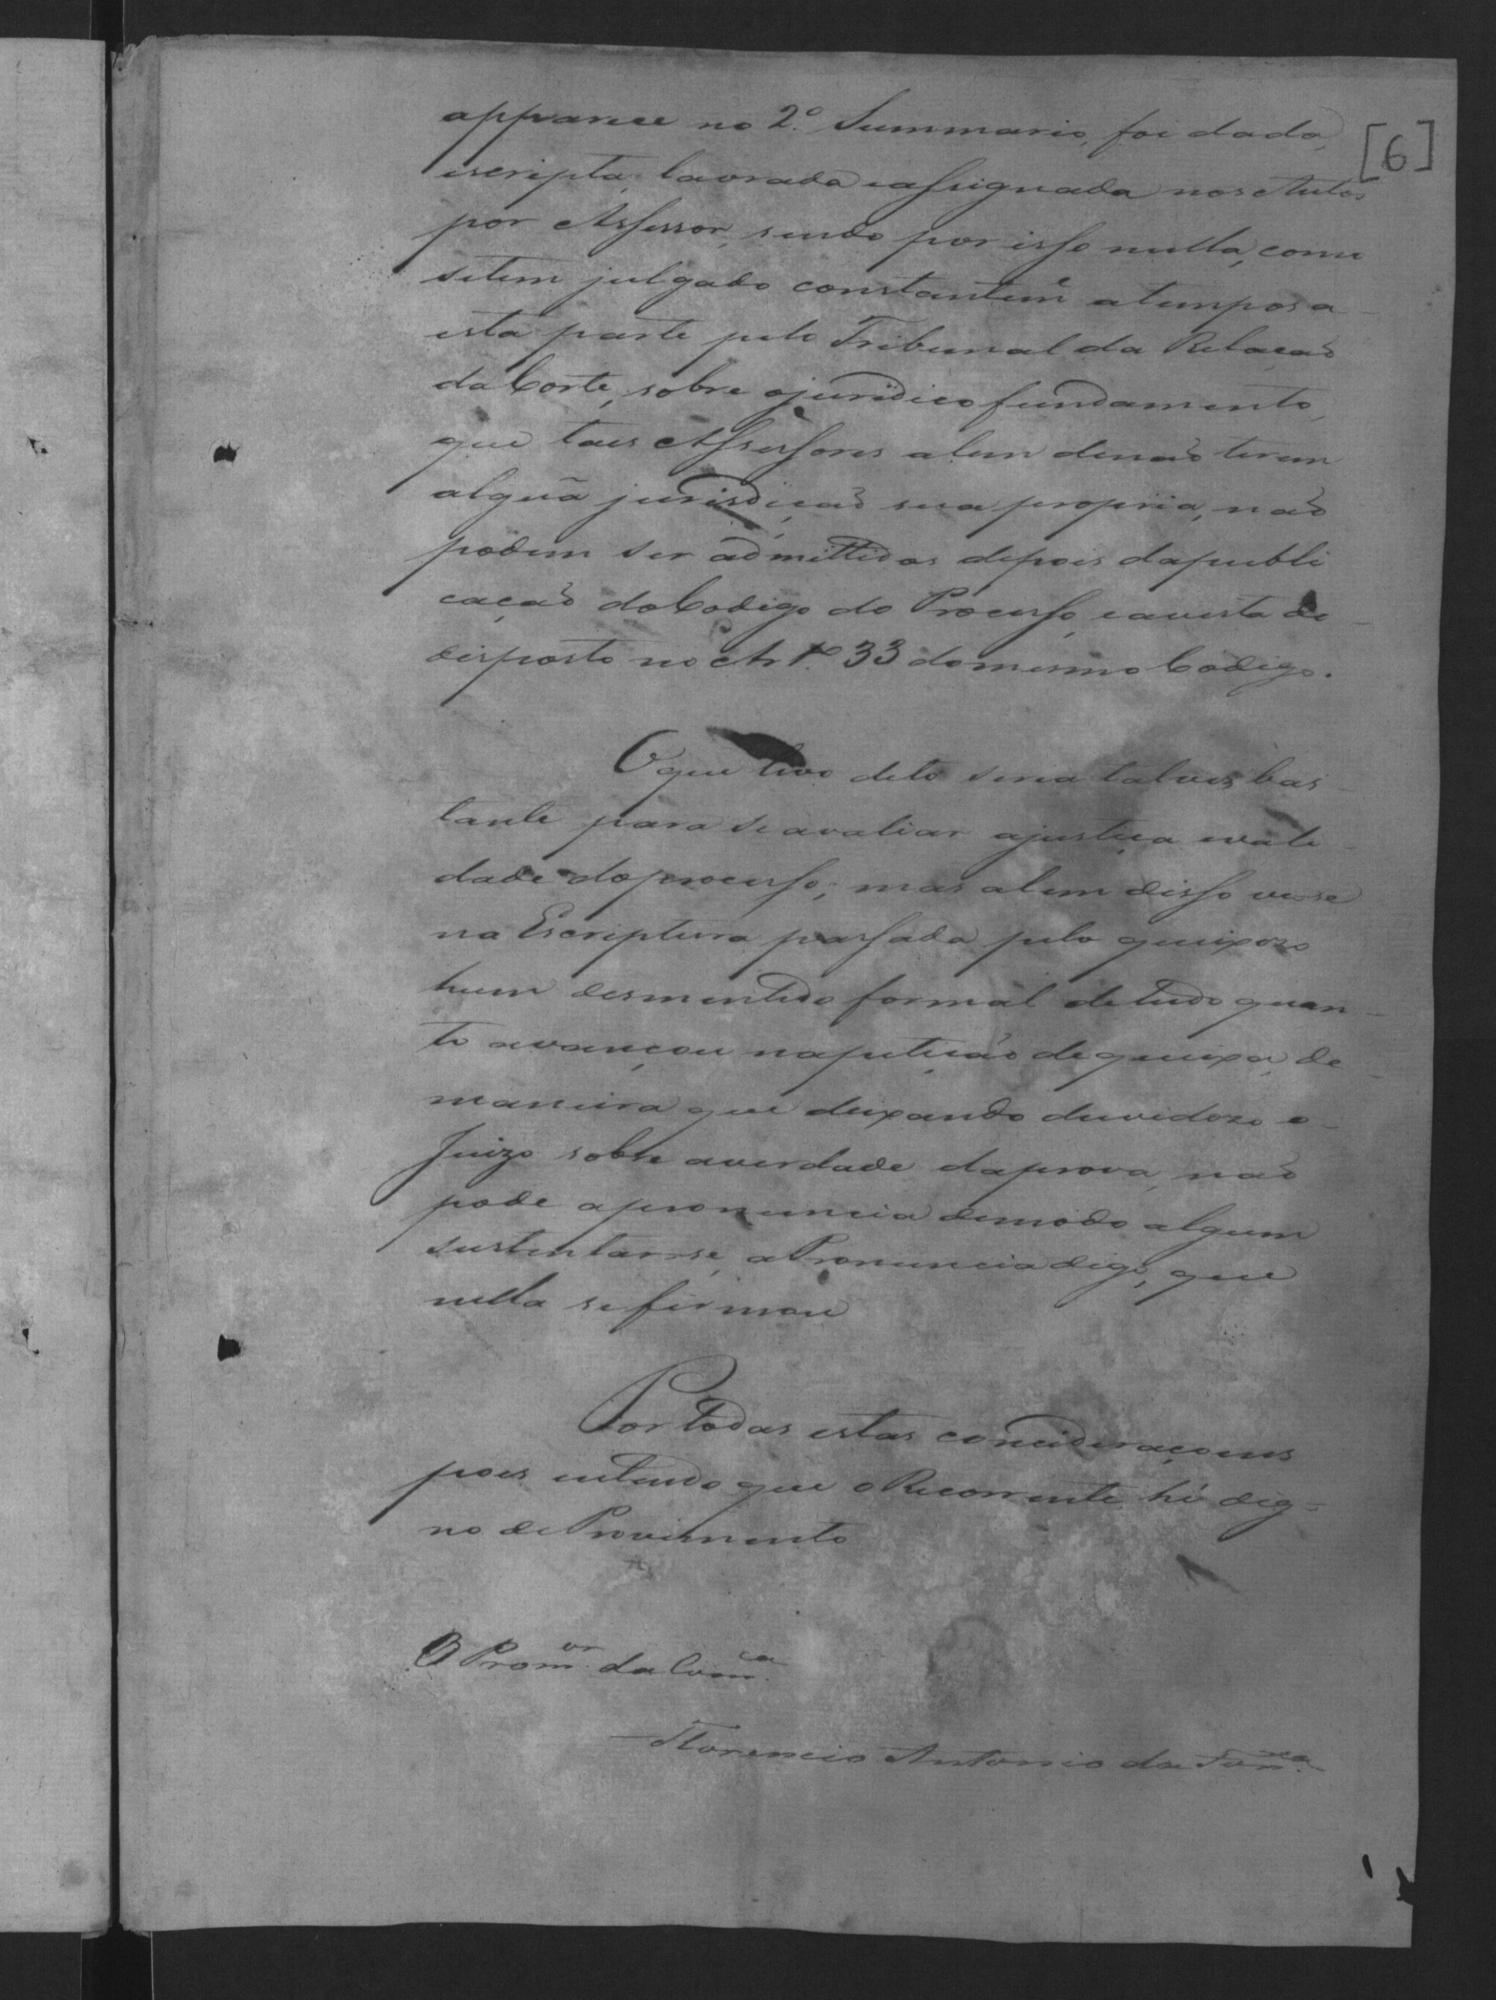 [6]
apparece no 2.º Summario, foi dada,
escripta, lavrada e assignada nos Autos
por Assessor, sendo por isso nulla, como
se tem julgado constantem.e a tempos a
esta parte pelo Tribunal da Relação
da Corte, sobre o juridico fundamento,
que taes Assessores alem de não terem
alguã jurisdição sua propria, não
podem ser admittidos depois da publi
cação do Codigo do Processo, e a vista do
disposto no Art.º 33 do mesmo Codigo.
O que levo dito seria talvez bas
tante para se avaliar a justiça e vali
dade do processo; mas alem disso ve-se
na Escriptura passada pelo queixozo
hum desmentido formal de tudo quan
to avançou na petição de queixa, de
maneira que deixando duvidozo o
Juizo sobre a verdade da prova, não
pode a pronuncia de modo algum
sustentar-se, a Pronuncia digo, que
nella se firmou
Por todas estas consideraçoens
pois entendo que o Recorrente hé dig=
no de Provimento
O Prom.or da Com.ca
Florencio Antonio da Fon.ca